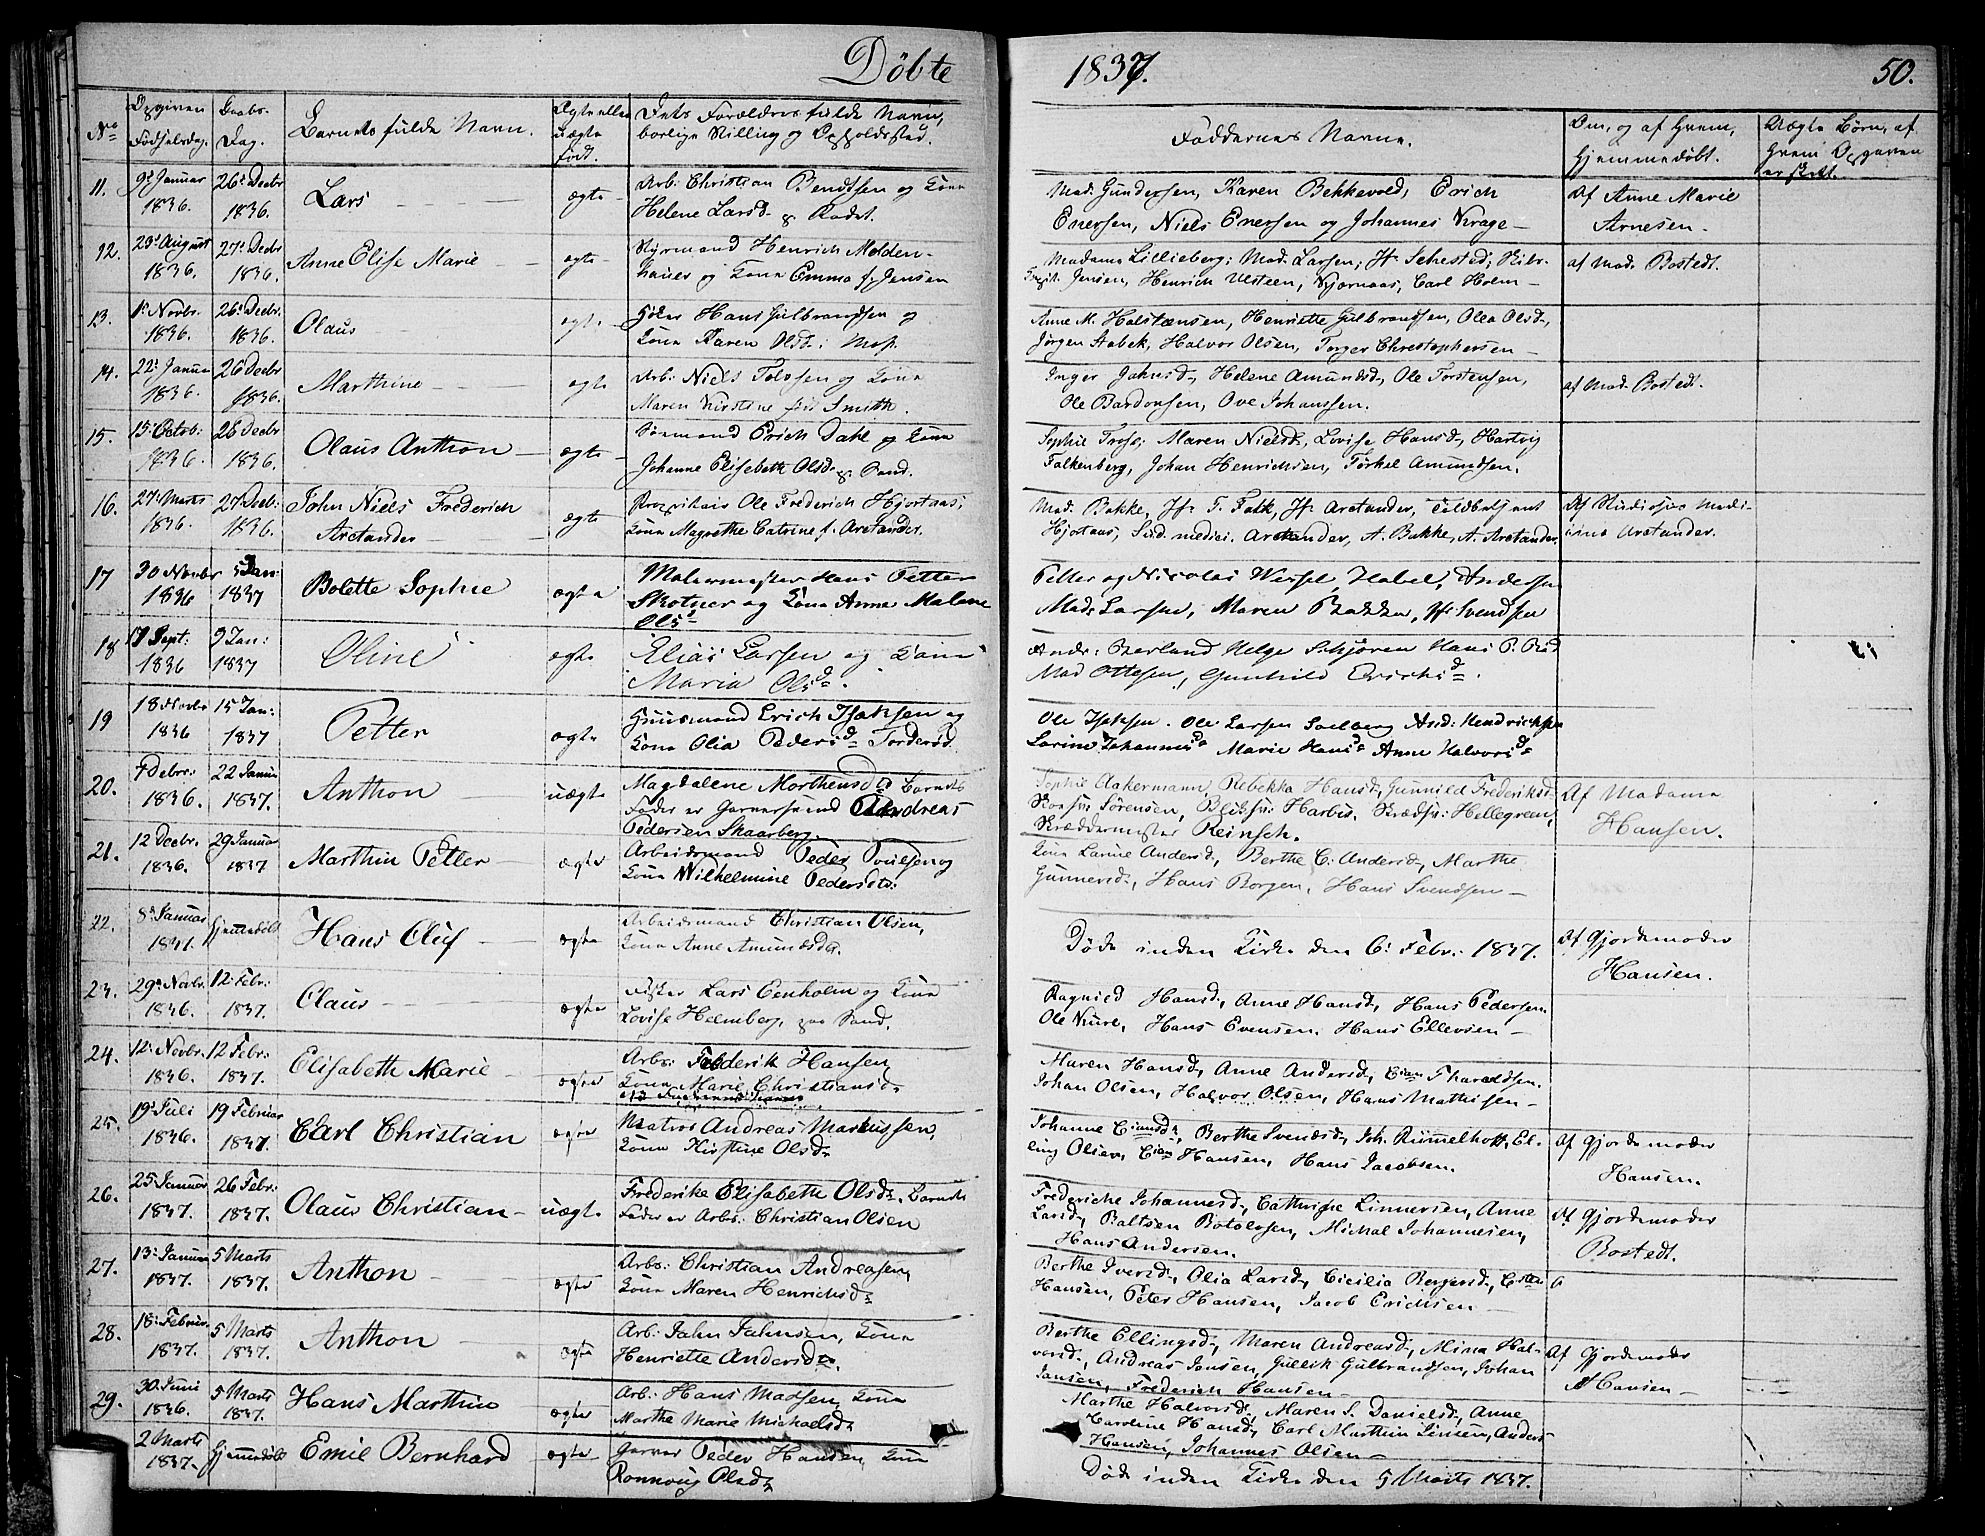 Döbte
1837.
50.
No
Opgiven Födselsdag.
Daabs-Dag.
Barnets fulde Navn.
Ægte eller uægte födt.
Dets Forældres fulde Navn,
borlige Stilling og Opholdssted.
Faddernes Navne.
Om, og af Hvem,
hjemmedöbt.
Uægte Börn, af
Hvem Opgaven
er skeet.
11.
9de Januar 1836.
26de Decbr 1836.
Lars
ægte
Arb: Christian Bendtsen og Kone
Helene Larsd.
Mad. Gundersen, Karen Bekkevold, Erich
Enersen, Niels Enersen og Johannes Krage
Af Anne Marie
Arnesen
12.
23de August 1836.
27de Decbr 1836.
Anne Elise Marie
ægte
Styrmand Henrich Molden-
hauer og Kone Emma f. Jensen
Madame Lillieberg; Mad. Larsen; Jf. Sehested; Skibs-
Jensen, Henrich Ulsteen, Carl Holm
af Mad. Bostedt.
13.
1ste Novbr. 1836.
26de Decbr. 1836.
Olaus
ægte
Hans Gulbrandsen og
Kone Karen Olsd: Moss.
Anne M. Halstensen, Henriette Gulbrandsen, Olea Olsd.,
Jörgen Stabek, Halvor Olsen, Torger Christophersen
14.
22de Januar 1836.
26 Decbr 1836.
Marthine
ægte
Arb: Niels Tolvsen og Kone
Maren Kirstine född Smith.
Inger Jahnsd., Helene Amundsd., Ole Torstensen,
Ole Bardonsen, Ove Johanssen.
af Mad. Bostedt.
15.
15: Octob: 1836.
26 Decbr 1836.
Olaus Anthon
ægte
Sömand Erich Dahl og Kone
Johanne Elisabeth Olsd. Sand.
Sophie Maren Nielsd., Lovise Hansd., Hartvig
Falkenberg, Johan Henrichsen, Törkel Amundsen.
16.
27: Marts 1836.
27 Decb: 1836.
John Niels Frederich
Arctander
ægte
Ole Frederich Hjortaas,
Kone Magrethe Catrine f. Arctander.
Mad. Bakke, Jf. T. Falk, Jf. Arctander,
Hjortaas, Stud. medici. Arctander, A. Bakke, A. Arctander.
Af Studiosus Medi-
cinæ Arctander.
17
30 Novbr 1836
5 Jan: 1837
Bolette Sophie
ægte
Malermester Hans Petter
Skotner og Kone Anne Malene
Olsd
Petter og Nicolai Wessel, Habel, Andersen
Mad: Larsen, Maren Bakke, Jf: Svendsen
18
17 Sept: 1836
9 Jan: 1837
Oline
ægte
Elias Larsen og Kone
Maria Olsd.
Andr: Berland Helge Schjören Hans P.
Mad Ottesen, Gunhild Erichsd.
19
18 Novbr 1836
15 Jan: 1837
Petter
ægte
Huusmand Erich Isaksen og
Kone Olia Pedersd Torderöd.
Ole Isaksen. Ole Larsen Soelberg And: Hendrichsen
Larine Johannesd Marie Hansd Anne Halvorsd
20.
7 Debr: 1836.
22 Januar 1837.
Anthon
uægte
Magdalene Morthensd. Barnets
Fader er Garversvend Andreas
Pedersen Skaarberg.
Sophie Aakermann, Rebekka Hansd., Gunnild Frederiksd.
Sörensen, Harbis, Hellegreen,
Skræddermester Reinsch.
Af Madame
Hansen.
21.
12 Decbr. 1836.
29 Januar 1837
Marthin Petter
ægte
Arbeidsmand Peder Poulsen og
Kone Wilhelmine Pedersdtr.
Kone Larine Andersd., Berthe C. Andersd., Marthe
Gunnersd., Hans Borgen, Hans Svendsen
22.
8de Januar 1837.
Hjemmedöbt
Hans Oluf
ægte
Arbeidsmand Christian Olsen,
Kone Anne Amundsdtr.
Döde inden Kirke den 6: Febr: 1837.
Af Gjordemoder
Hansen.
23.
29de Novbr. 1836.
12: Febr: 1837.
Olaus
ægte
Fisker Lars Eenholm og Kone
Lovise Helmberg, paa Sand.
Ragnild Hansd., Anne Hansd., Hans Pedersen
Ole Hans Evensen, Hans Ellevsen
24.
12: Novbr. 1836.
12 Febr: 1837.
Elisabeth Marie
ægte
Arb: Frederik Hansen
Kone Marie Christiansd.
Maren Hansd., Anne Andersd., Cian Tharaldsen.
Johan Olsen, Halvor Olsen, Hans Mathisen
25.
19de Juli 1836.
19 Februar 1837.
Carl Christian
ægte
Matros Andreas Markussen,
Kone Kirstine Olsd.
Johanne Ciansd., Berthe Svendsd., Joh. Rummelhoff, El-
ling Olsen, Cian Hansen, Hans Jacobsen.
Af Gjordemoder
Hansen.
26.
25 Januar 1837.
26 Febr: 1837.
Olaus Christian
uægte
Frederike Elisabeth Olsd. Barnets
Fader er Arb: Christian Olsen
Frederiche Johannesd., Cathrine Linnersen, Anne
Larsd., Baltsen Botolvsen, Michal Johannesen,
Hans Andersen.
Af Gjordemoder
Bostedt.
27.
13: Januar 1837.
5 Marts 1837.
Anthon
ægte
Arb: Christian Andreasen,
Kone Maren Henrichsd.
Berthe Iversd., Olia Larsd., Cicilia Bergersd., Cstian
Hansen, Peter Hansen, Jacob Erichsen
28.
18: Februar. 1837.
5 Marts 1837.
Anthon
ægte
Arb: Jahn Jahnsen, Kone
Henriette Andersd.
Berthe Ellingsd., Maren Andreasd., Mina Hal-
vorsd., Andreas Jensen, Gullik Gulbrandsen, Johan
Jansen, Frederich Hansen
Af Gjordemoder
Hansen
29.
30 Juni 1836.
5 Marts 1837.
Hans Marthin
ægte
Arb: Hans Madsen, Kone
Marthe Marie Michaelsd.
Marthe Halvorsd., Maren S. Danielsd., Anne
Caroline Hansd., Carl Marthin Jensen, Anders
Hansen, Johannes Olsen
2 Marts 1837.
Hjemmedöbt
Emil Bernhard
ægte
Garver Peder Hansen, Kone
Ronnoug Olsd.
Döde inden Kirke den 5 Marts 1837.